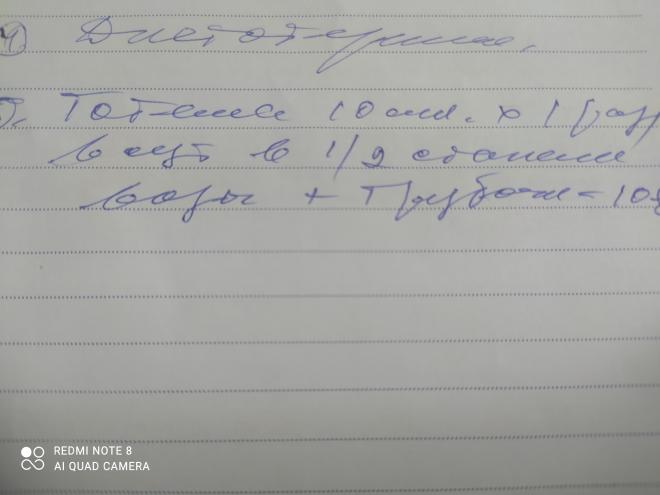 4) Диетотерапия.
5. Тотема 10 мл. х 1 раз
в сут в 1/2 стакане
воды + Трибокс - 10
REDMI NOTE 8
AI QUAD CAMERA